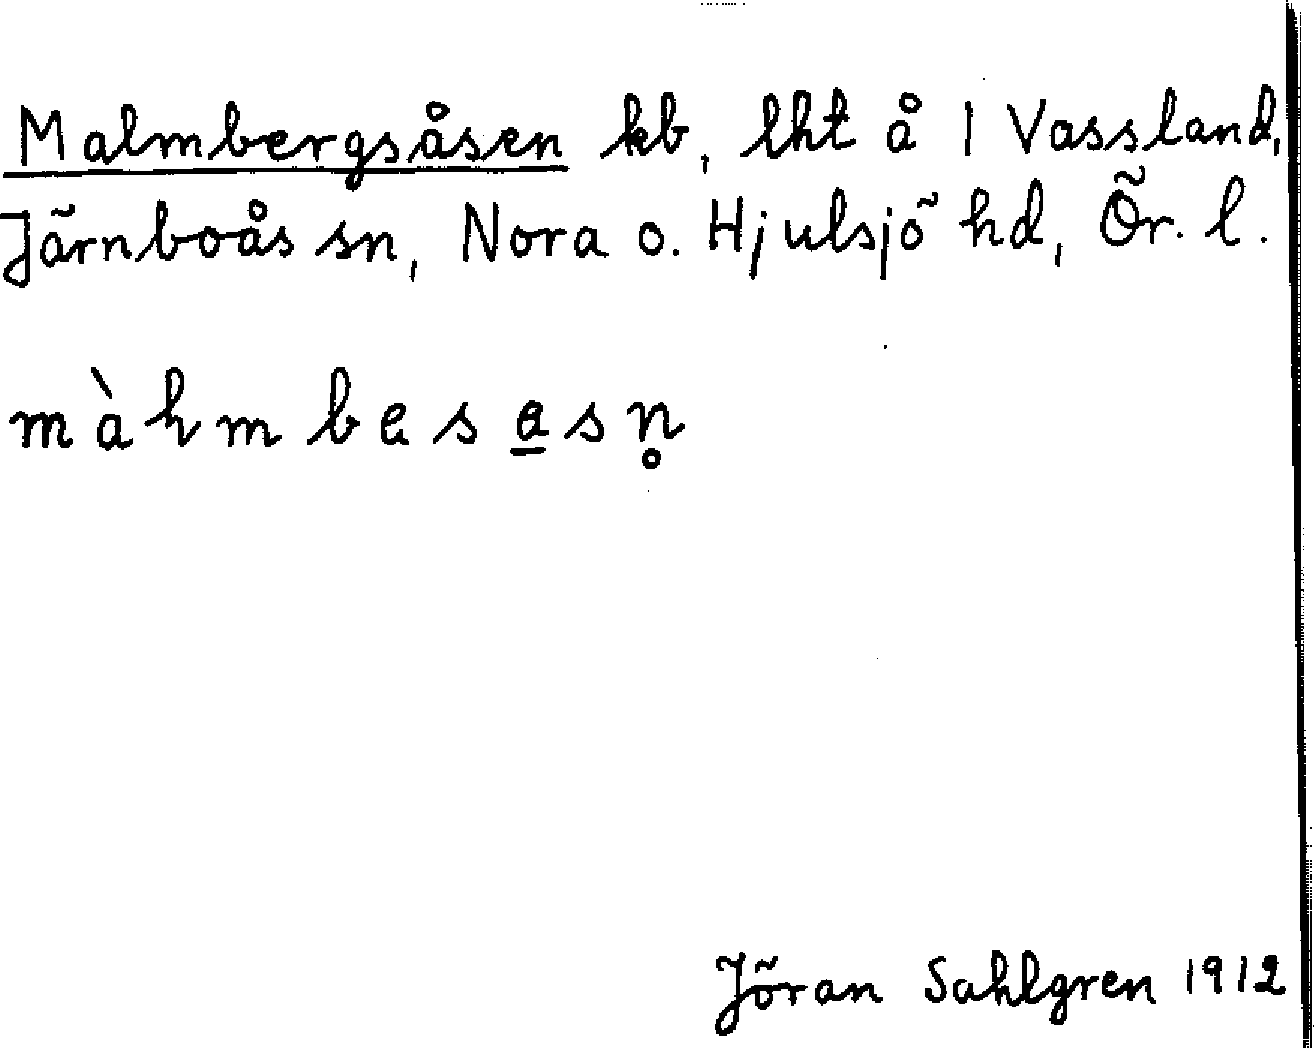 Malmbergsåsen kb, lht å 1 Vassland,
Järnboås sn, Nora o. Hjulsjö hd, Ör. l.
màhmbesa̲sn̥
Jöran Sahlgren 1912